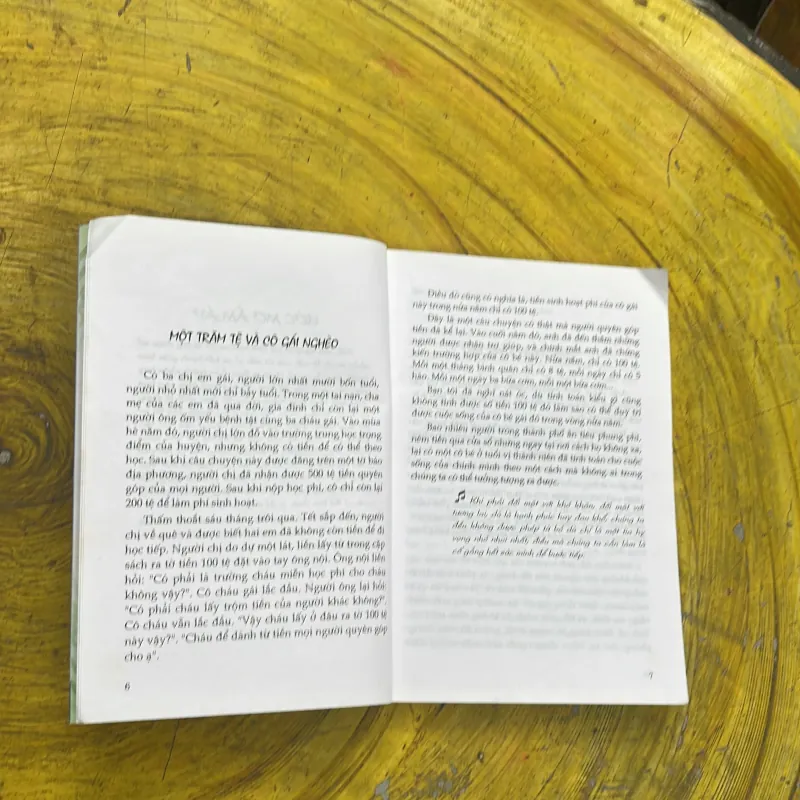 MỘT TRĂM TỆ VÀ CÔ GÁI NGHÈO
Có ba chị em gái, người lớn nhất mười bốn tuổi,
người nhỏ nhất mới chỉ bảy tuổi. Trong một tai nạn, cha
mẹ của các em đã qua đời, gia đình chỉ còn lại một
người ông ốm yếu bệnh tật cùng ba cháu gái. Vào mùa
hè năm đó, người chị lớn đỗ vào trường trung học trọng
điểm của huyện, nhưng không có tiền để có thể theo
học. Sau khi câu chuyện này được đăng trên một tờ báo
địa phương, người chị đã nhận được 500 tệ tiền quyên
góp của mọi người. Sau khi nộp học phí, cô chỉ còn lại
200 tệ để làm phí sinh hoạt.
Thấm thoắt sáu tháng trôi qua. Tết sắp đến, người
chị về quê và được biết hai em đã không còn tiền để đi
học tiếp. Người chị do dự một lát, liền lấy từ trong cặp
sách ra tờ tiền 100 tệ đặt vào tay ông nội. Ông nội liền
hỏi: "Có phải là trường cháu miễn học phí cho cháu
không vậy?". Cô cháu gái lắc đầu. Người ông lại hỏi:
"Có phải cháu lấy trộm tiền của người khác không?".
Cô cháu vẫn lắc đầu. "Vậy cháu lấy ở đâu ra tờ 100 tệ
này vậy?". "Cháu để dành từ tiền mọi người quyên góp
cho ạ".
6
Điều đó cũng có nghĩa là, tiền sinh hoạt phí của cô gái
này trong nửa năm chỉ có 100 tệ.
Đây là một câu chuyện có thật mà người quyên góp
tiền đã kể lại. Vào cuối năm đó, anh đã đến thăm những
người được nhận trợ giúp, và chính mắt anh đã chứng
kiến trường hợp của cô bé này. Nửa năm, chỉ có 100 tệ.
Một tháng bình quân chỉ có 8 tệ, mỗi ngày chỉ có 5
hào. Mỗi một ngày ba bữa cơm, mỗi một bữa cơm...
Bạn tôi đã nghĩ nát óc, dù tính toán kiểu gì cũng
không tính được số tiền 100 tệ đó làm sao có thể duy trì
được cuộc sống của cô bé gái đó trong vòng nửa năm.
Bao nhiêu người trong thành phố ăn tiêu phung phí,
ném tiền qua cửa sổ nhưng ngay tại nơi cách họ không xa,
lại có một cô bé ở tuổi vị thành niên đã tính toán cho cuộc
sống của chính mình theo một cách mà không ai trong
chúng ta có thể tưởng tượng ra được.
Khi phải đối mặt với khó khăn, đối mặt với
tương lai, dù là hạnh phúc hay đau khổ chúng ta
đều không được phép từ bỏ dù chỉ là một tia hy
vọng nhỏ nhoi nhất, điều mà chúng ta cần làm là
cố gắng hết sức mình để bước tiếp.
7